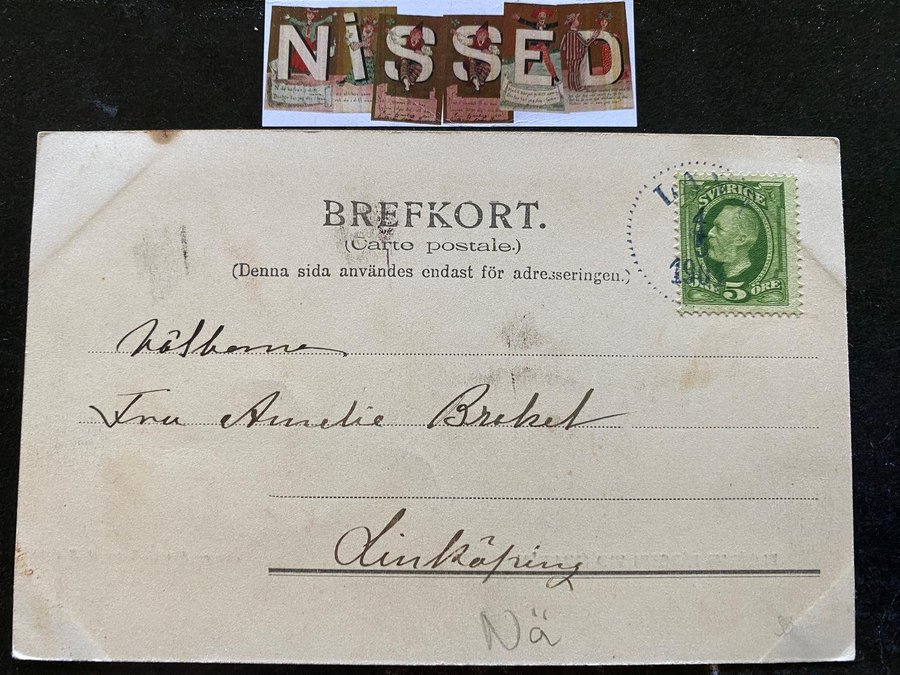 NiSSED
BREFKORT.
(Carte postale.)
(Denna sida användes endast för adresseringen.)
SVERIGE
5 ÖRE
Välborna
Fru Amelie Broket
Linköping
Nä